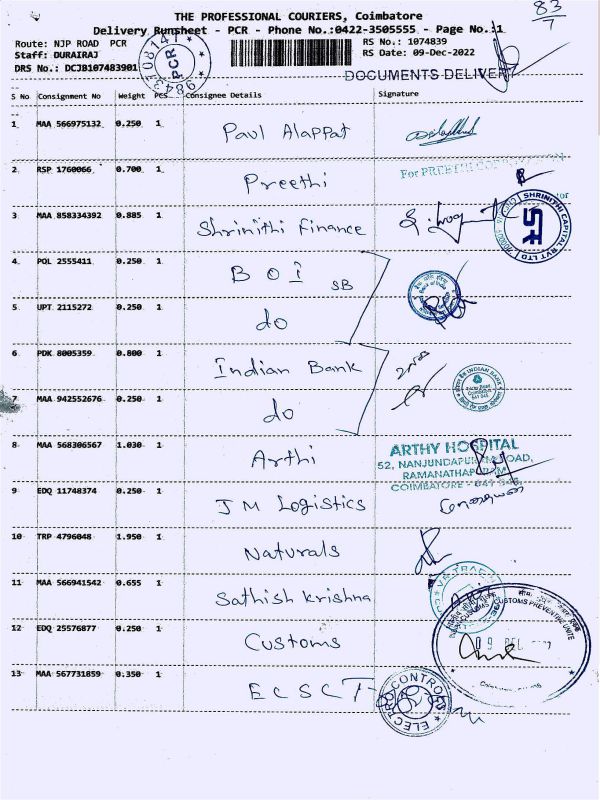 83/7
THE PROFESSIONAL COURIERS, Coimbatore
Delivery Runsheet - PCR - Phone No.:0422-3505555 - Page No.:1
Route: NJP ROAD PCR
RS No.: 1074839
Staff: DURAIRAJ
RS Date: 09-Dec-2022
DRS No.: DCJB107483901
PCR
DOCUMENTS DELIVERY
S No Consignment No Weight PCS Consignee Details Signature
1 MAA 566975132 0.250 1 Paul Alappat
2 RSP 1760066 0.700 1 Preethi
For PREETHI CORPORATION
3 MAA 858334392 0.885 1 Shrinithi Finance
SHRINITHI CAPITAL PVT LTD
4 POL 2555411 0.250 1 BOI SB
5 UPT 2115272 0.250 1 do
6 PDK 8005359 0.800 1 Indian Bank
INDIAN BANK
7 MAA 942552676 0.250 1 do
8 MAA 568306567 1.030 1 Arthi
ARTHY HOSPITAL
52, NANJUNDAPURAM ROAD,
RAMANATHAPURAM
COIMBATORE - 641 045.
9 EDQ 11748374 0.250 1 JM Logistics
10 TRP 4796048 1.950 1 Naturals
11 MAA 566941542 0.655 1 Sathish krishna
12 EDQ 25576877 0.250 1 Customs
CUSTOMS PREVENTIVE UNIT
09 DEC
13 MAA 567731859 0.350 1 ECSCT
ELECTRO CONTROLS